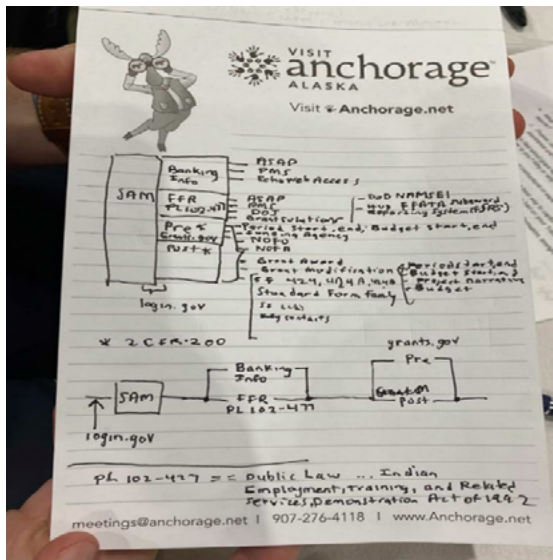 VISIT
anchorage
ALASKA
Visit Anchorage.net
SAM
Banking Info
ASAP
PMS
Echo Web Access
FFR
PL 102-477
ASAP
PMS
DOJ
GrantSolutions
DoD NAMSEI
HUD FFATA Subaward
Reporting System (FSRS)
Pre *
Grants.gov
Post *
Period Start, end, Budget start, end
Funding Agency
NOFO
NOFA
Grant Award
Grant Modification
SF 424, 424A,
Standard Form Family
Key contacts
Period start, end
Budget start, end
Project Narrative
Budget
login.gov
* 2 CFR.200
grants.gov
SAM
Banking
Info
FFR
PL 102-477
Pre
Post
login.gov
PL 102-477 == Public Law ... Indian
Employment, Training, and Related
Services, Demonstration Act of 1992
meetings@anchorage.net | 907-276-4118 | www.Anchorage.net